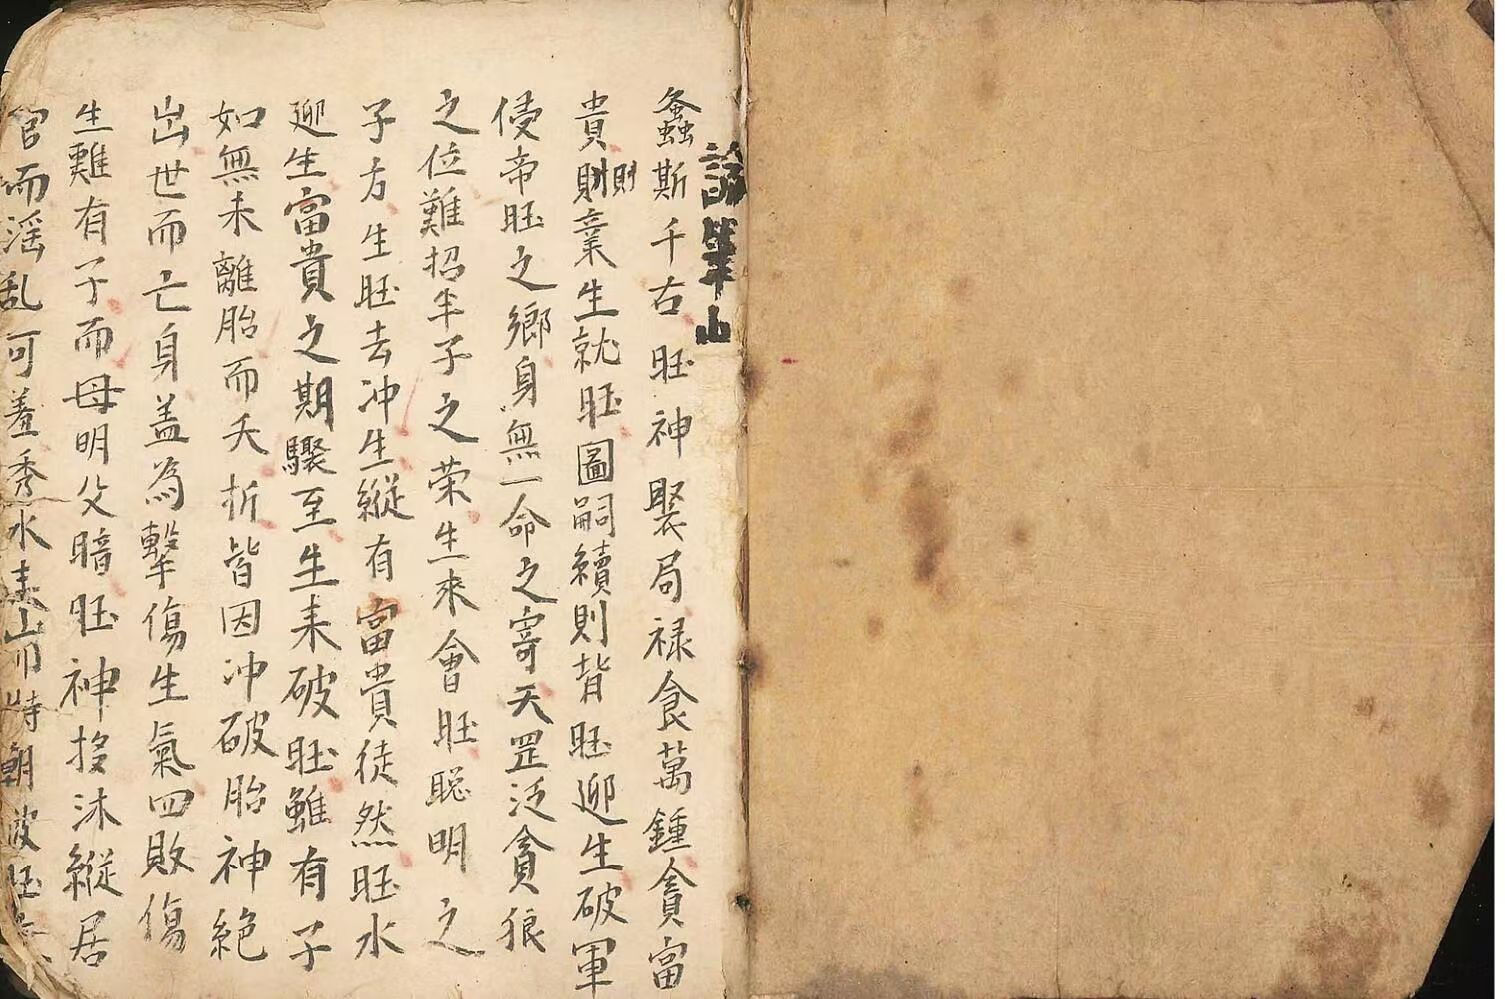 論筆山
螽斯千右旺神聚局禄食萬鍾貪富
貴財則業生就旺圖嗣續則背旺迎生破軍
侵帝旺之鄉身無一命之寄天罡泛貪狼
之位難招半子之荣生來會旺聪明之
子方生旺去冲生縱有富貴徒然旺水
迎生富貴之期驟至生来破旺雖有子
如無未離胎而夭折皆因冲破胎神絶
出世而亡身盖為擊傷生氣四敗傷
生難有子而母明父暗旺神投沐縱居
官而淫乱可羞秀水来山特朝破旺